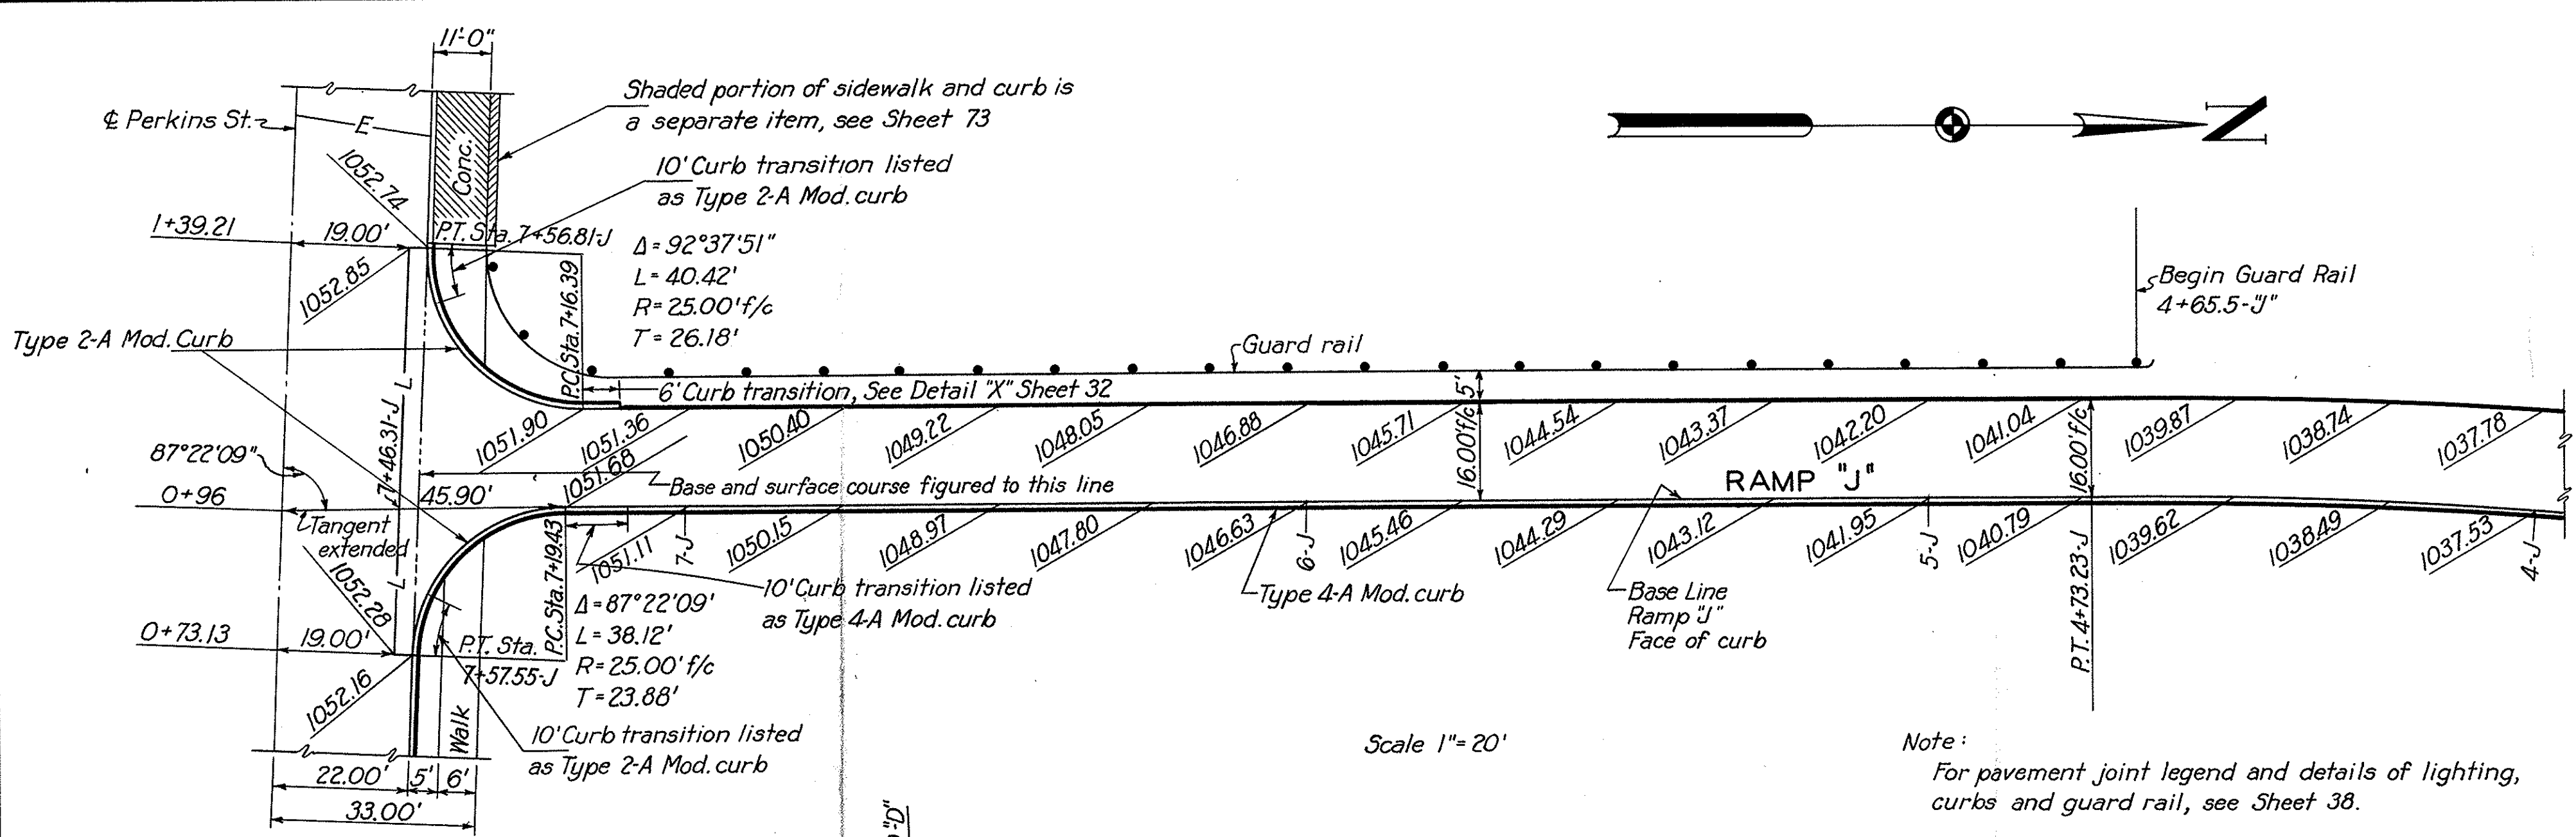 11'-0"
Shaded portion of sidewalk and curb is
a separate item, see Sheet 73
℄ Perkins St.
E
Conc.
10' Curb transition listed
as Type 2-A Mod. curb
N
1052.74
1+39.21
19.00'
P.T. Sta. 7+56.81-J
1052.85
Δ = 92°37'51"
L = 40.42'
R = 25.00' f/c
T = 26.18'
P.C. Sta. 7+16.39
Begin Guard Rail
4+65.5-"J"
Type 2-A Mod. Curb
Guard rail
6' Curb transition, See Detail "X" Sheet 32
5'
L
7+46.31-J
L
1051.90
1051.36
1050.40
1049.22
1048.05
1046.88
1045.71
16.00' f/c
1044.54
1043.37
1042.20
1041.04
16.00' f/c
1039.87
1038.74
1037.78
87°22'09"
1051.68
0+96
45.90'
Base and surface course figured to this line
RAMP "J"
Tangent
extended
1051.11
7-J
1050.15
1048.97
1047.80
1046.63
6-J
1045.46
1044.29
1043.12
1041.95
5-J
1040.79
1039.62
1038.49
1037.53
4-J
1052.28
P.C. Sta. 7+19.43
10' Curb transition listed
as Type 4-A Mod. curb
Type 4-A Mod. curb
Base Line
Ramp "J"
Face of curb
P.T. 4+73.23-J
0+73.13
19.00'
P.T. Sta.
7+57.55-J
Δ = 87°22'09'
L = 38.12'
R = 25.00' f/c
T = 23.88'
1052.16
Walk
10' Curb transition listed
as Type 2-A Mod. curb
Scale 1" = 20'
22.00'
5'
6'
33.00'
Note:
For pavement joint legend and details of lighting,
curbs and guard rail, see Sheet 38.
"D"